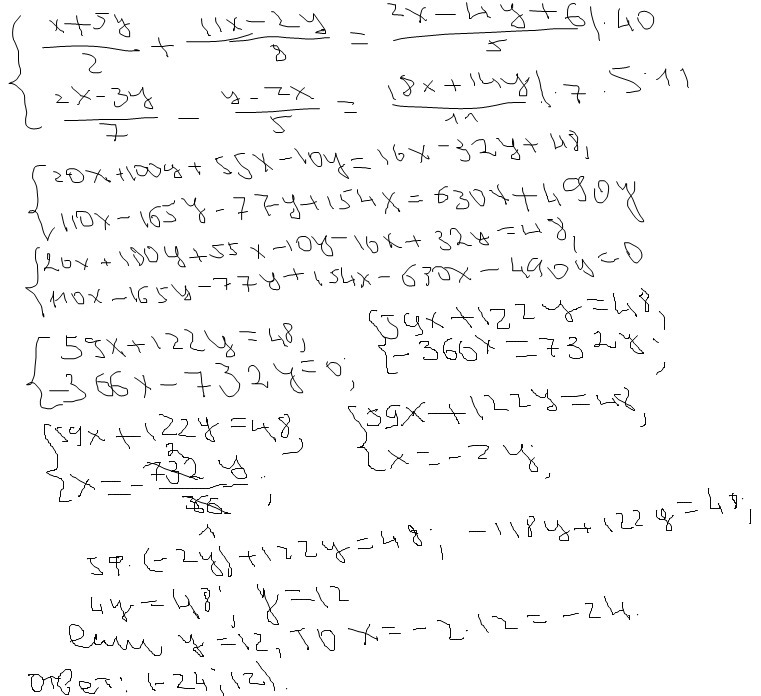 { (x+5y)/2 + (11x-2y)/8 = (2x-4y+6)/5 |·40
{ (2x-3y)/7 - (y-2x)/5 = (18x+14y)/11 |·7·5·11
{ 20x+100y+55x-10y=16x-32y+48,
{ 110x-165y-77y+154x=630x+490y
{ 20x+100y+55x-10y-16x+32y=48,
{ 110x-165y-77y+154x-630x-490y=0
{ 59x+122y=48, { 59x+122y=48,
{ -366x-732y=0; { -366x=732y;
{ 59x+122y=48, { 59x+122y=48,
{ x=-732y/366; 2 1 { x=-2y;
59·(-2y)+122y=48; -118y+122y=48;
4y=48; y=12
Если y=12, то x=-2·12=-24.
Ответ: (-24;12).